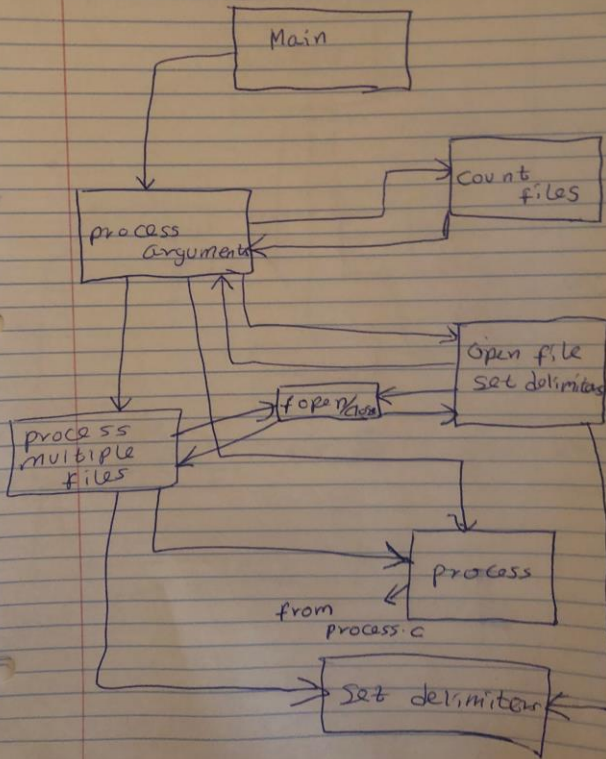 Main
count
files
process
arguments
open file
set delimiters
fopen/close
process
multiple
files
process
from
process.c
set delimiters